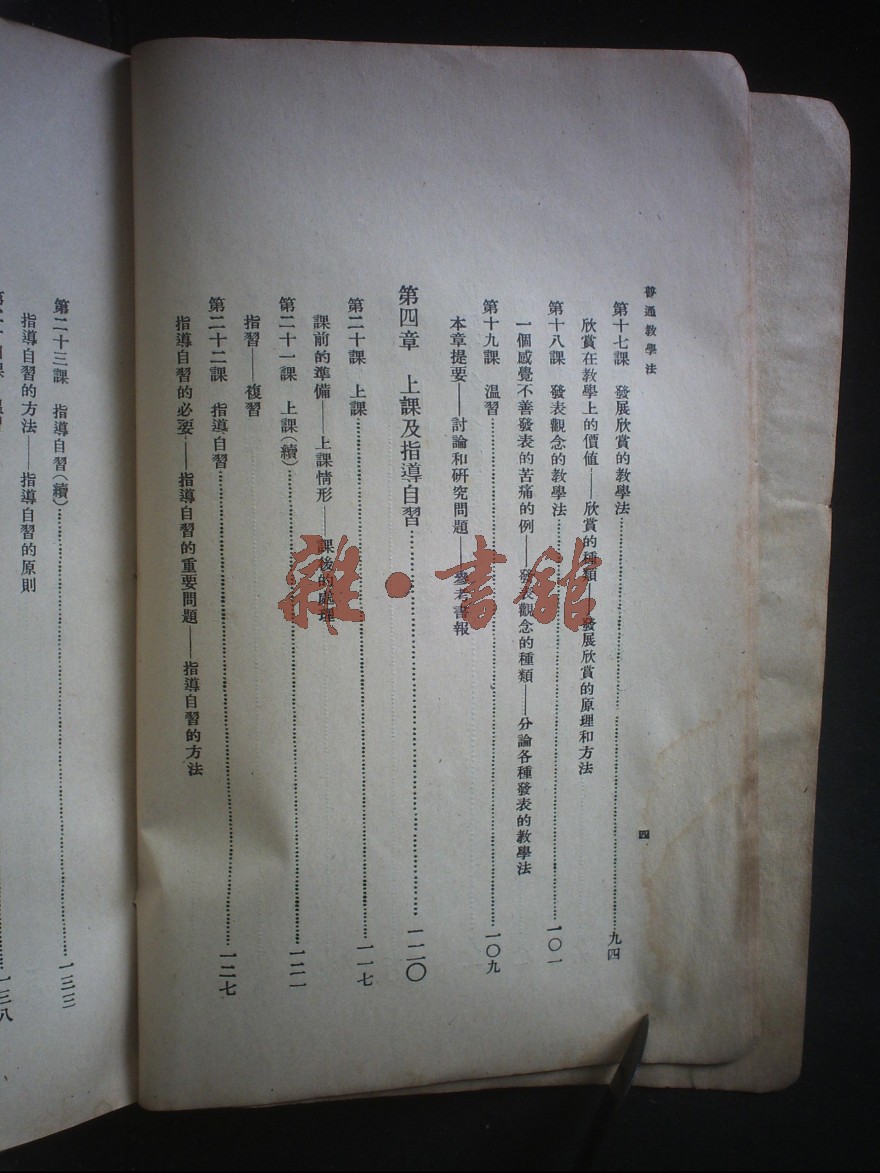 普通教學法
四
第十七課　發展欣賞的教學法……九四
欣賞在教學上的價值——欣賞的種類——發展欣賞的原理和方法
第十八課　發表觀念的教學法……一〇一
一個感覺不善發表的苦痛的例——發表觀念的種類——分論各種發表的教學法
第十九課　温習……一〇九
本章提要——討論和研究問題——參考書報
第四章　上課及指導自習……一一〇
第二十課　上課……一一七
課前的準備——上課情形——課後的處理
第二十一課　上課(續)……一二一
指習——複習
第二十二課　指導自習……一二七
指導自習的必要——指導自習的重要問題——指導自習的方法
第二十三課　指導自習(續)……一三三
指導自習的方法——指導自習的原則
一三八
雜·書館